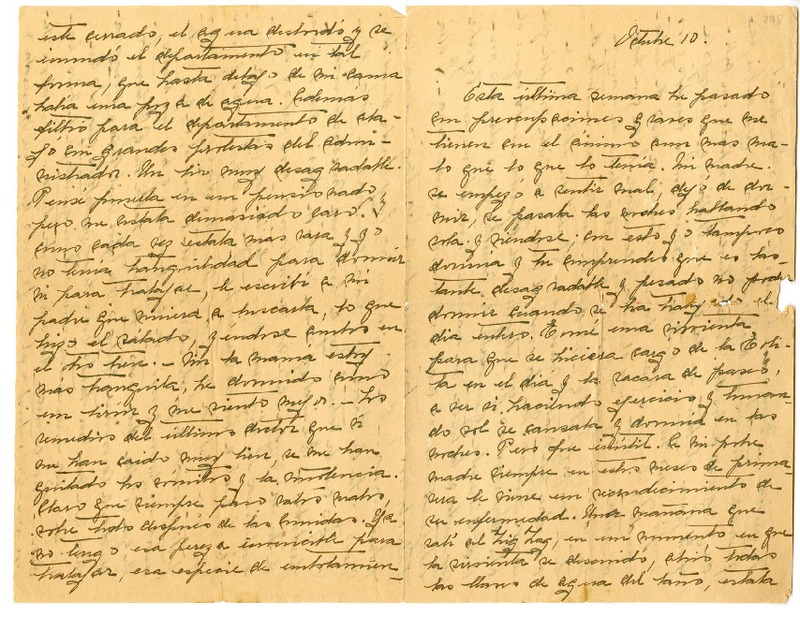 Octubre 10.
Esta última semana he pasado
con preocupaciones graves que me
tienen con el ánimo aun más ma-
lo que lo que lo tenía. Mi madre
se empezó a sentir mal, dejó de dor-
mir, se pasaba las noches hablando
sola y riéndose; con esto yo tampoco
dormía y tu comprendes que es bas-
tante desagradable y pesado no poder
dormir cuando se ha trabajado el
día entero. Tomé una sirvienta
para que se hiciera cargo de la
en el día y la sacara de paseo,
a ver si haciendo ejercicio y toman-
do sol se cansaba y dormía en las
noches. Pero fue inútil. A mi pobre
madre siempre en estos meses de prima-
vera le viene un recrudecimiento de
su enfermedad. Una mañana que
salí al Zig Zag, en un momento en que
la sirvienta se descuidó, abrió todas
las llaves de agua del baño, estaba
este cerrado, el agua desbordó y se
inundó el departamento en tal
forma, que hasta debajo de mi cama
había una poza de agua. Además
filtró para el departamento de aba-
jo con grandes protestas del admi-
nistrador. Un lío muy desagradable.
Pensé ponerla en un pensionado,
pero me costaba demasiado caro. Y
como cada vez estaba más rara y yo
no tenía tranquilidad para dormir
ni para trabajar, le escribí a mi
padre que viniera a buscarla, lo que
hizo el sábado, yéndose ambos en
el otro tren. – Sin la mamá estoy
más tranquila, he dormido como
un lirón y me siento mejor. – Los
remedios del último doctor que vi
me han caído muy bien, se me han
quitado los vómitos y la somnolencia.
Claro que siempre paso ratos malos,
sobre todo después de las comidas. Ya
no tengo esa pereza invencible para
trabajar, esa especie de embotamien-